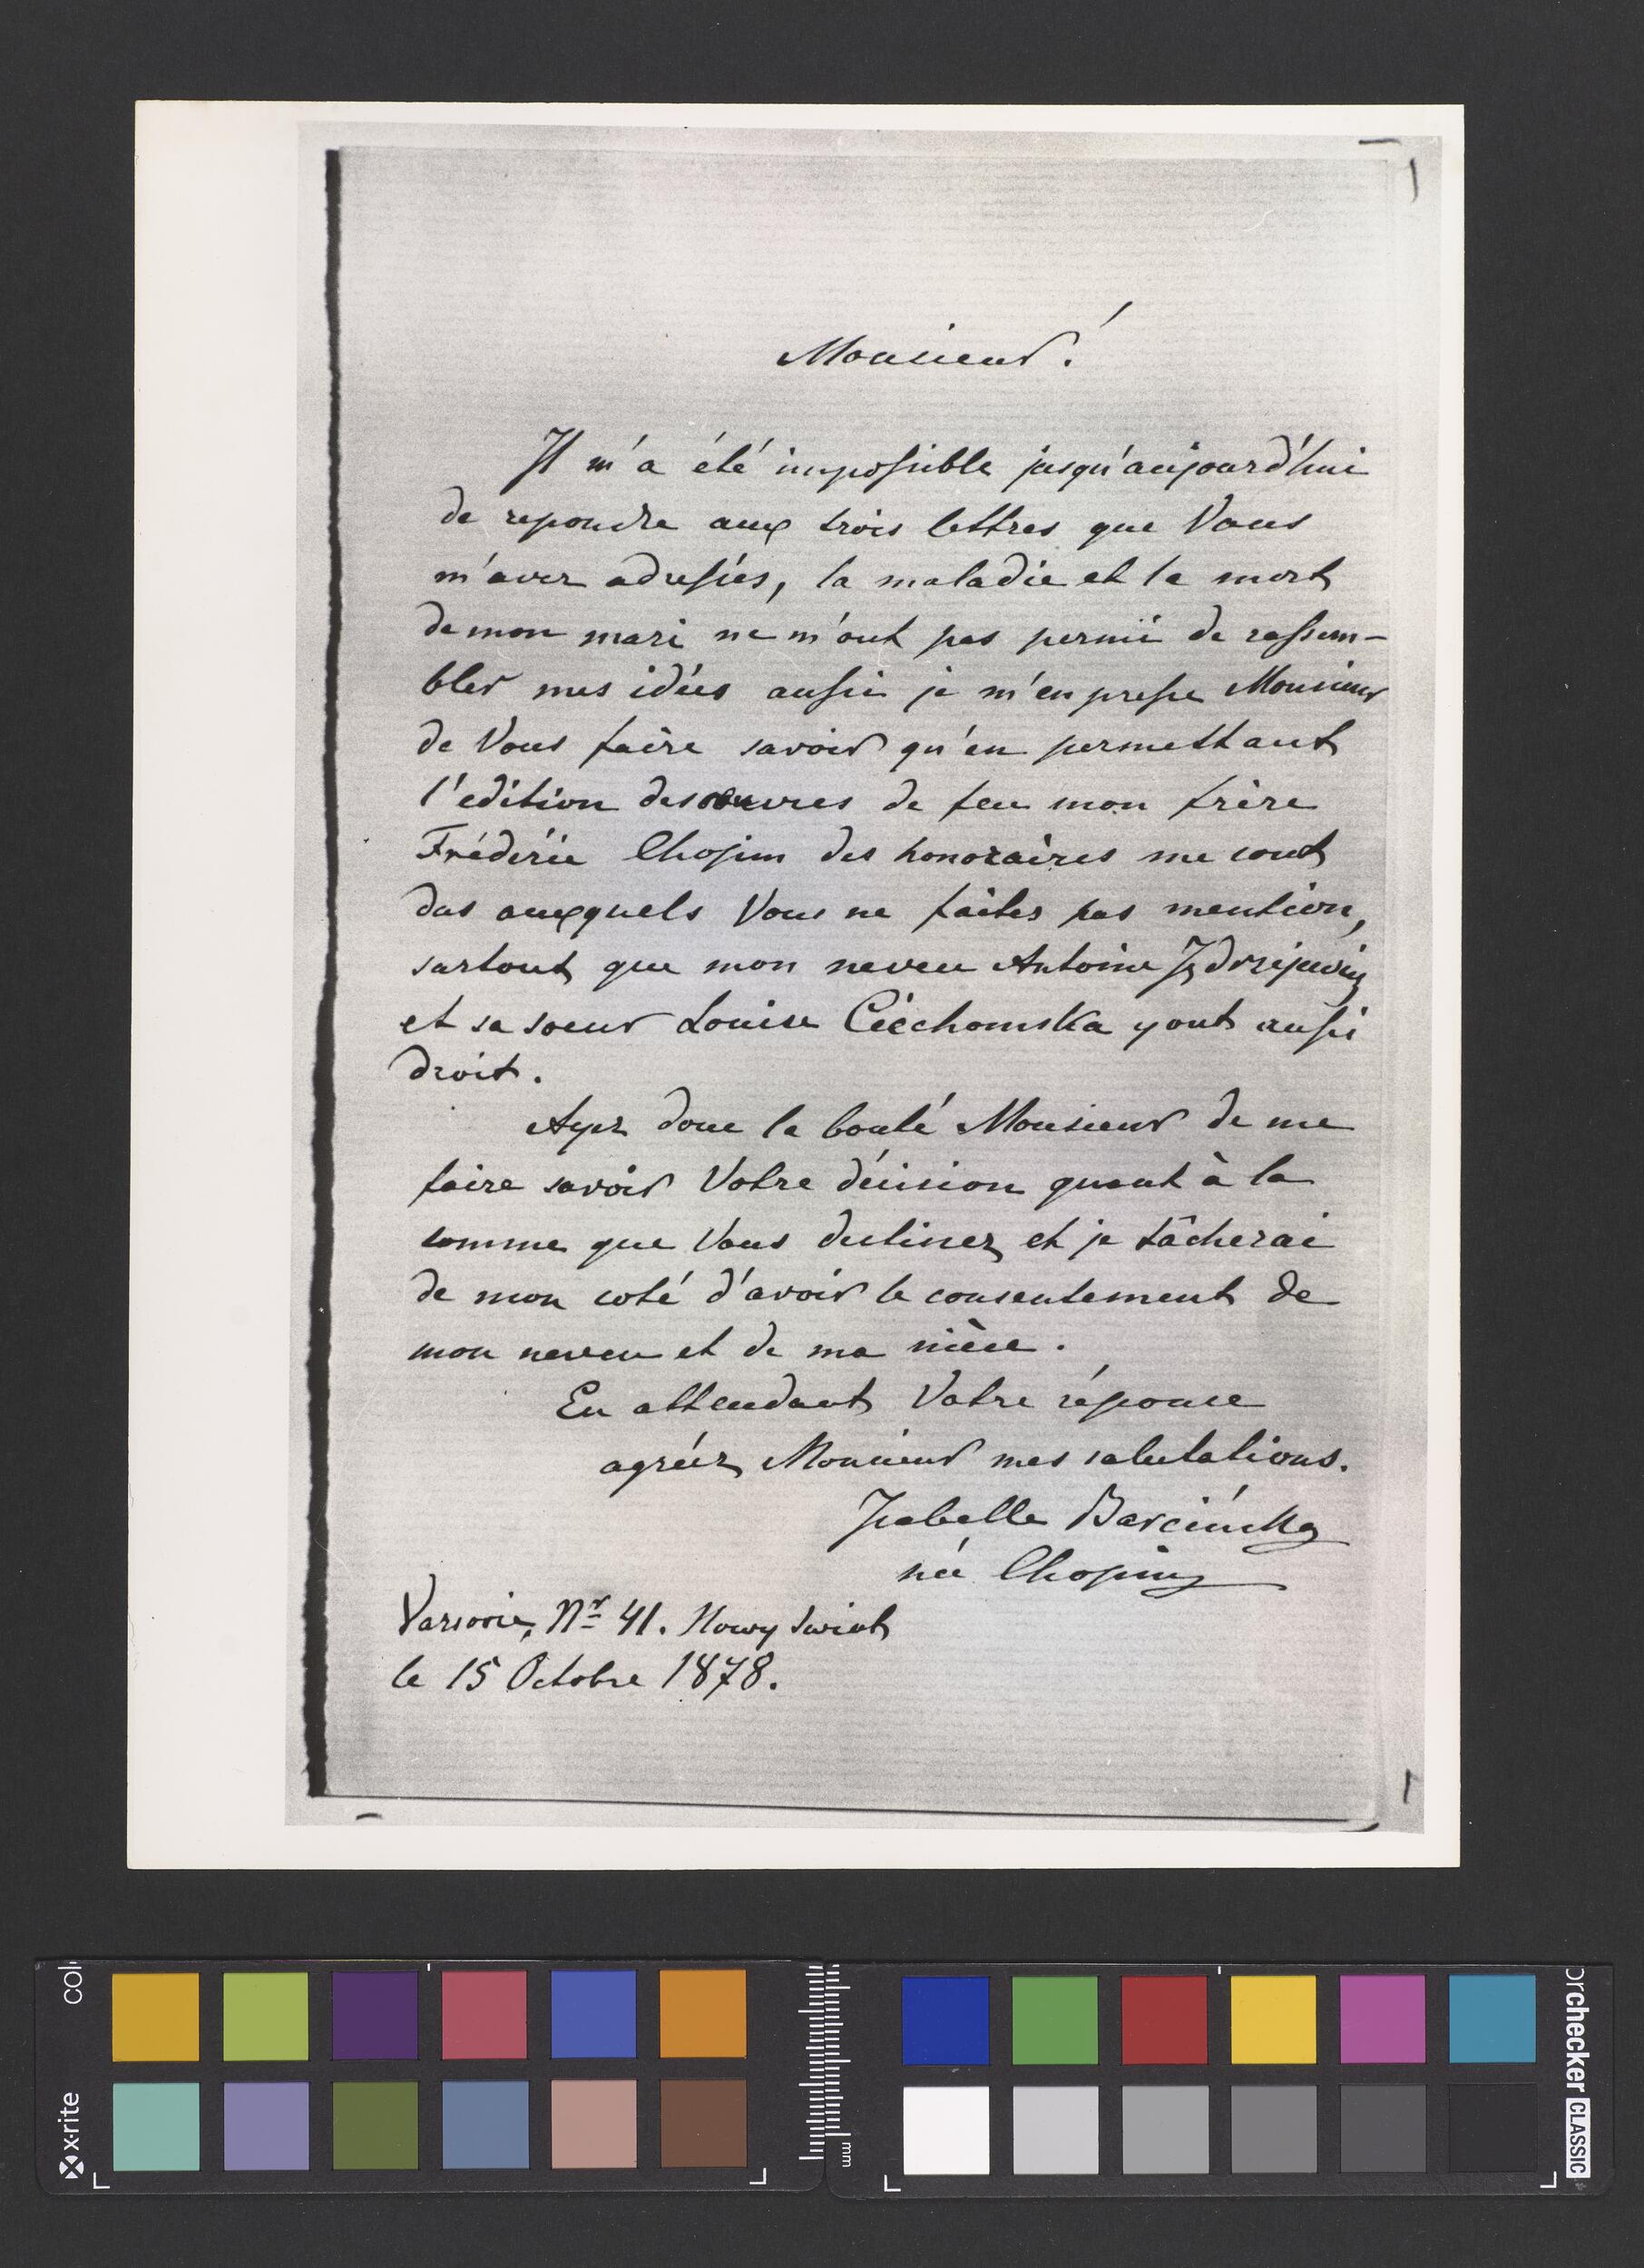 Monsieur!
Il m'a été impossible jusqu'aujourd'hui
de repondre aux trois lettres que Vous
m'avez adressées, la maladie et la mort
de mon mari ne m'ont pas permi de rassem-
bler mes idées aussi je m'en presse Monsieur
de Vous faire savoir qu'en permettant
l'edition des oeuvres de feu mon frère
Fréderic Chopin des honoraires me sont
dus auxquels Vous ne faites pas mention,
surtout que mon neveu Antoine Jędrzejewicz
et sa soeur Louise Ciechomska y ont aussi
droit.
Ayez donc la bonté Monsieur de me
faire savoir Votre décision quant à la
somme que Vous destinez et je tâcherai
de mon coté d'avoir le consentement de
mon neveu et de ma nièce.
En attendant Votre réponse
agréez Monsieur mes salutations.
Isabelle Barcińska
née Chopin
Varsovie, Nr 41. Nowy Swiat
le 15 Octobre 1878.
x-rite
mm
checker CLASSIC